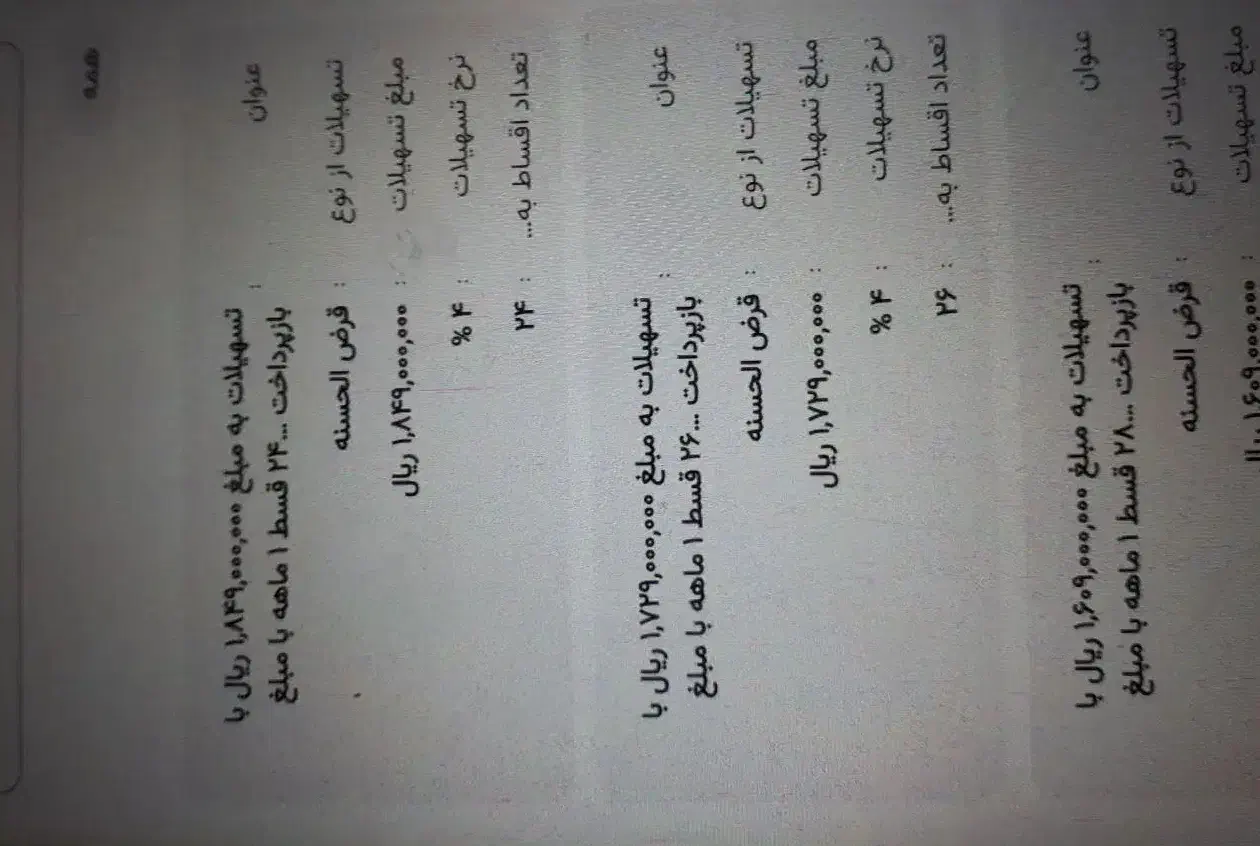 همه
عنوان : تسهیلات به مبلغ ۱,۸۴۹,۰۰۰,۰۰۰ ریال با
بازپرداخت ...۲۴ قسط ۱ ماهه با مبلغ
تسهیلات از نوع : قرض الحسنه
مبلغ تسهیلات : ۱,۸۴۹,۰۰۰,۰۰۰ ریال
نرخ تسهیلات : ۴ %
تعداد اقساط به... : ۲۴
عنوان : تسهیلات به مبلغ ۱,۷۲۹,۰۰۰,۰۰۰ ریال با
بازپرداخت ...۲۶ قسط ۱ ماهه با مبلغ
تسهیلات از نوع : قرض الحسنه
مبلغ تسهیلات : ۱,۷۲۹,۰۰۰,۰۰۰ ریال
نرخ تسهیلات : ۴ %
تعداد اقساط به... : ۲۶
عنوان : تسهیلات به مبلغ ۱,۶۰۹,۰۰۰,۰۰۰ ریال با
بازپرداخت ...۲۸ قسط ۱ ماهه با مبلغ
تسهیلات از نوع : قرض الحسنه
مبلغ تسهیلات : ۱,۶۰۹,۰۰۰,۰۰۰ ریال